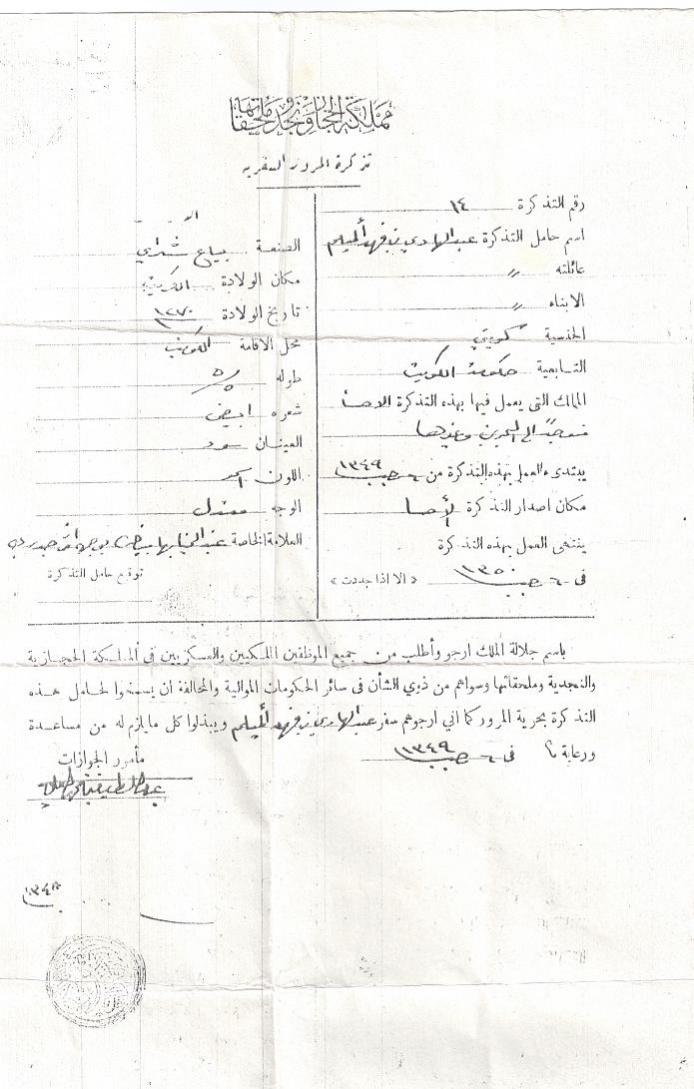 مملكة الحجاز ونجد وملحقاتها
تذكرة المرور السفرية
رقم التذكرة ١٤
اسم حامل التذكرة عبد الهادي بن فهد الميلم
عائلته "
الابناء "
الجنسية كويتي
التابعية حكومة الكويت
الممالك التى يعمل فيها بهذه التذكرة الاحسا
متوجها الى البحرين وغيرها
يبتدىء العمل بهذه التذكرة من ٦ رجب ١٣٤٩
مكان اصدار التذكرة الأحسا
ينتهى العمل بهذه التذكرة
فى ٦ رجب ١٣٥٠ «الا اذا جددت»
الصنعة بياع شراي
مكان الولادة الكويت
تاريخ الولادة ١٢٧٠
محل الاقامة الكويت
طوله ٥/٥
شعره ابيض
العينان سود
اللون اسمر
الوجه معتدل
العلامة الخاصة
توقيع حامل التذكرة
باسم جلالة الملك ارجو وأطلب من جميع الموظفين الملكيين والعسكريين فى المملكة الحجازية
والنجدية وملحقاتها وسواهم من ذوي الشأن فى سائر الحكومات الموالية والمحالفة أن يسمحوا لحامل هذه
التذكرة بحرية المرور كما اني ارجوهم سفر عبد الهادي بن فهد الميلم ويبذلوا كل ما يلزم له من مساعدة
ورعاية فى ٦ رجب ١٣٤٩
مأمور الجوازات